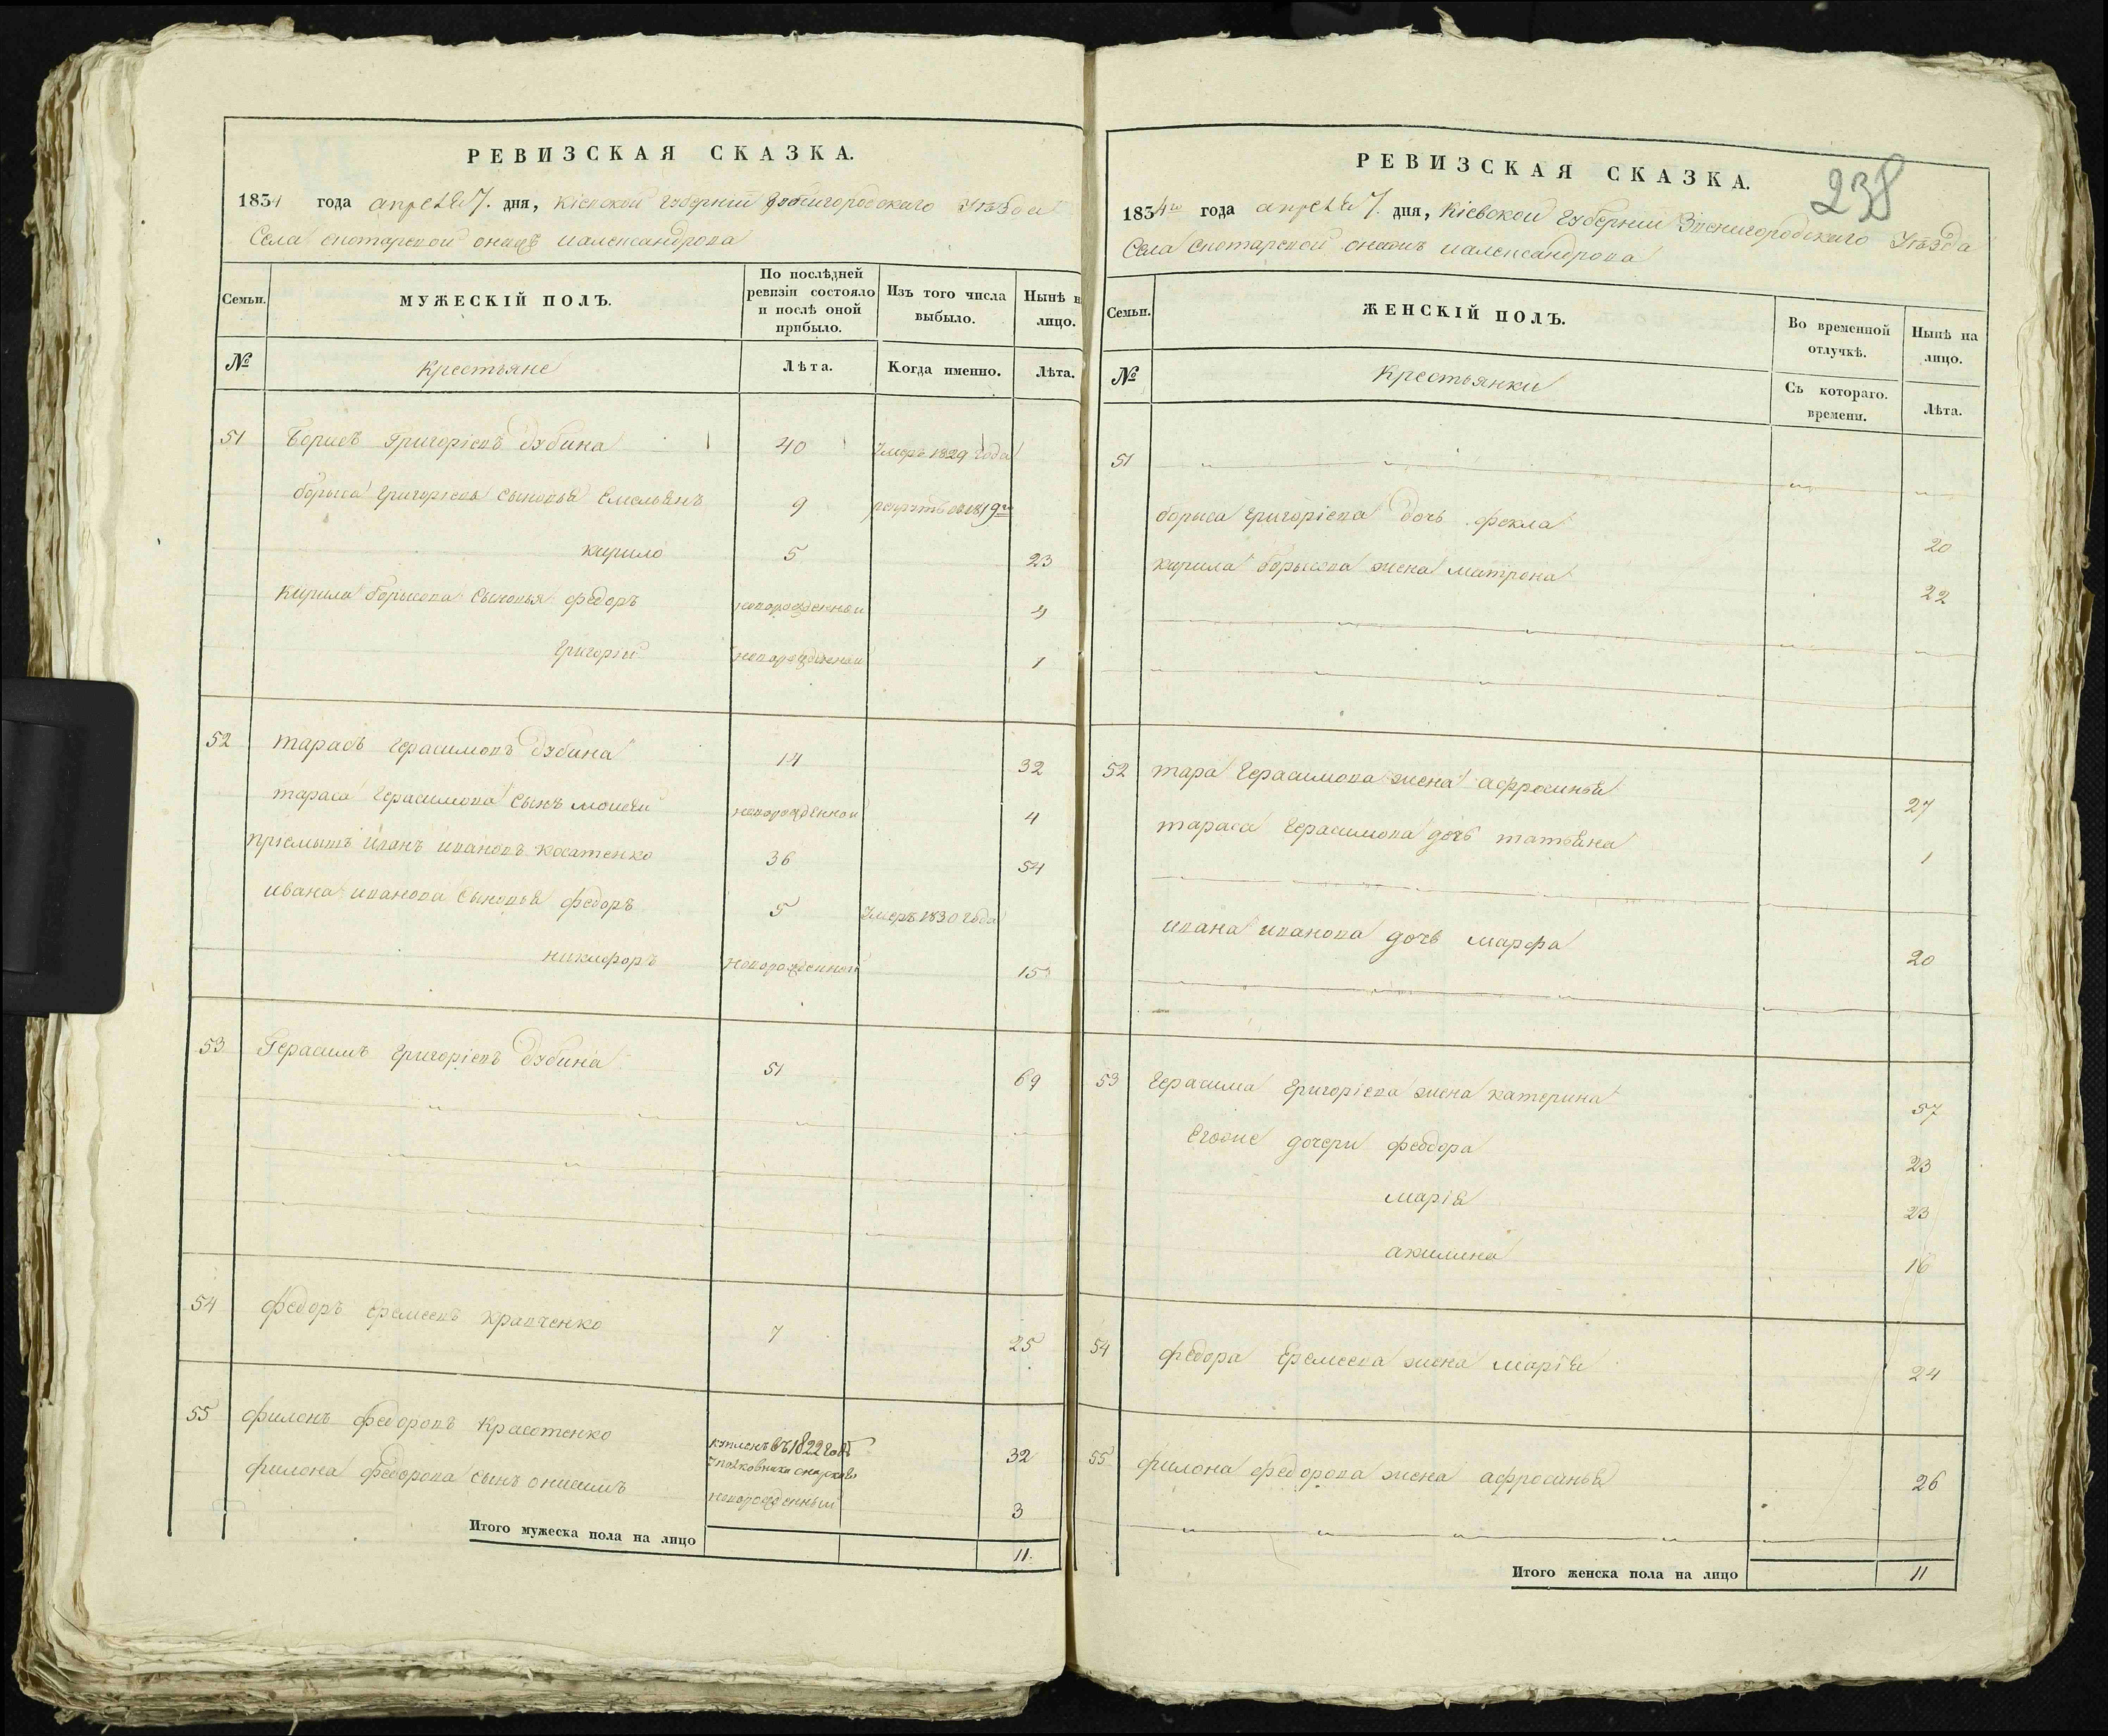 РЕВИЗСКАЯ СКАЗКА.
1834 года апреля 7. дня, Кіевской губерніи Звенигородскаго Уѣзда
Села скотарской онаже иалександрова
Семьи. МУЖЕСКІЙ ПОЛЪ. По послѣдней ревизіи состояло и послѣ оной прибыло. Изъ того числа выбыло. Нынѣ н лицо.
№ Крестьяне Лѣта. Когда именно. Лѣта.
51 Борисъ Григоріевъ дубина 40 Умеръ 1829 года
борыса Григоріева сыновья Емельянъ 9
кирило 5 23
Кирила борысова сыновья федоръ новорожденный 4
Григорій новорожденой 1
52 тарасъ герасимовъ дубина 14 32
тараса Герасимова сынъ мойсей новорожденной 4
пріемышъ иванъ ивановъ косатенко 36 54
ивана иванова сыновья федоръ 5 Умеръ 1830 года
никифоръ новорожденной 15
53 Герасимъ Григоріевъ дубина 51 69
54 федоръ Еремеевъ кравченко 7 25
55 филонъ федоровъ красотенко купленъ въ 1822 годѣ 32
уполковника
филона федорова сынъ онисимъ новорожденный 3
Итого мужеска пола на лицо 11.
238
РЕВИЗСКАЯ СКАЗКА.
1834го года апреля 7. дня, Кіевской губерніи Звенигородскаго Уѣзда
Села скотарской онаже иалександрова
Семьи. ЖЕНСКІЙ ПОЛЪ. Во временной отлучкѣ. Нынѣ на лицо.
№ Крестьянки Съ котораго. времени. Лѣта.
51
борыса Григоріева дочь фекла 20
кирила борысова жена матрона 22
52 тара Герасимова жена афросинья 27
тараса Герасимова дочь татьяна 1
ивана иванова дочь марфа 20
53 Герасима Григоріева жена катерина 57
Егоже дочери феодора 23
марія 23
акилина 16
54 федора Еремеева жена марія 24
55 филона федорова жена афросинья 26
Итого женска пола на лицо 11